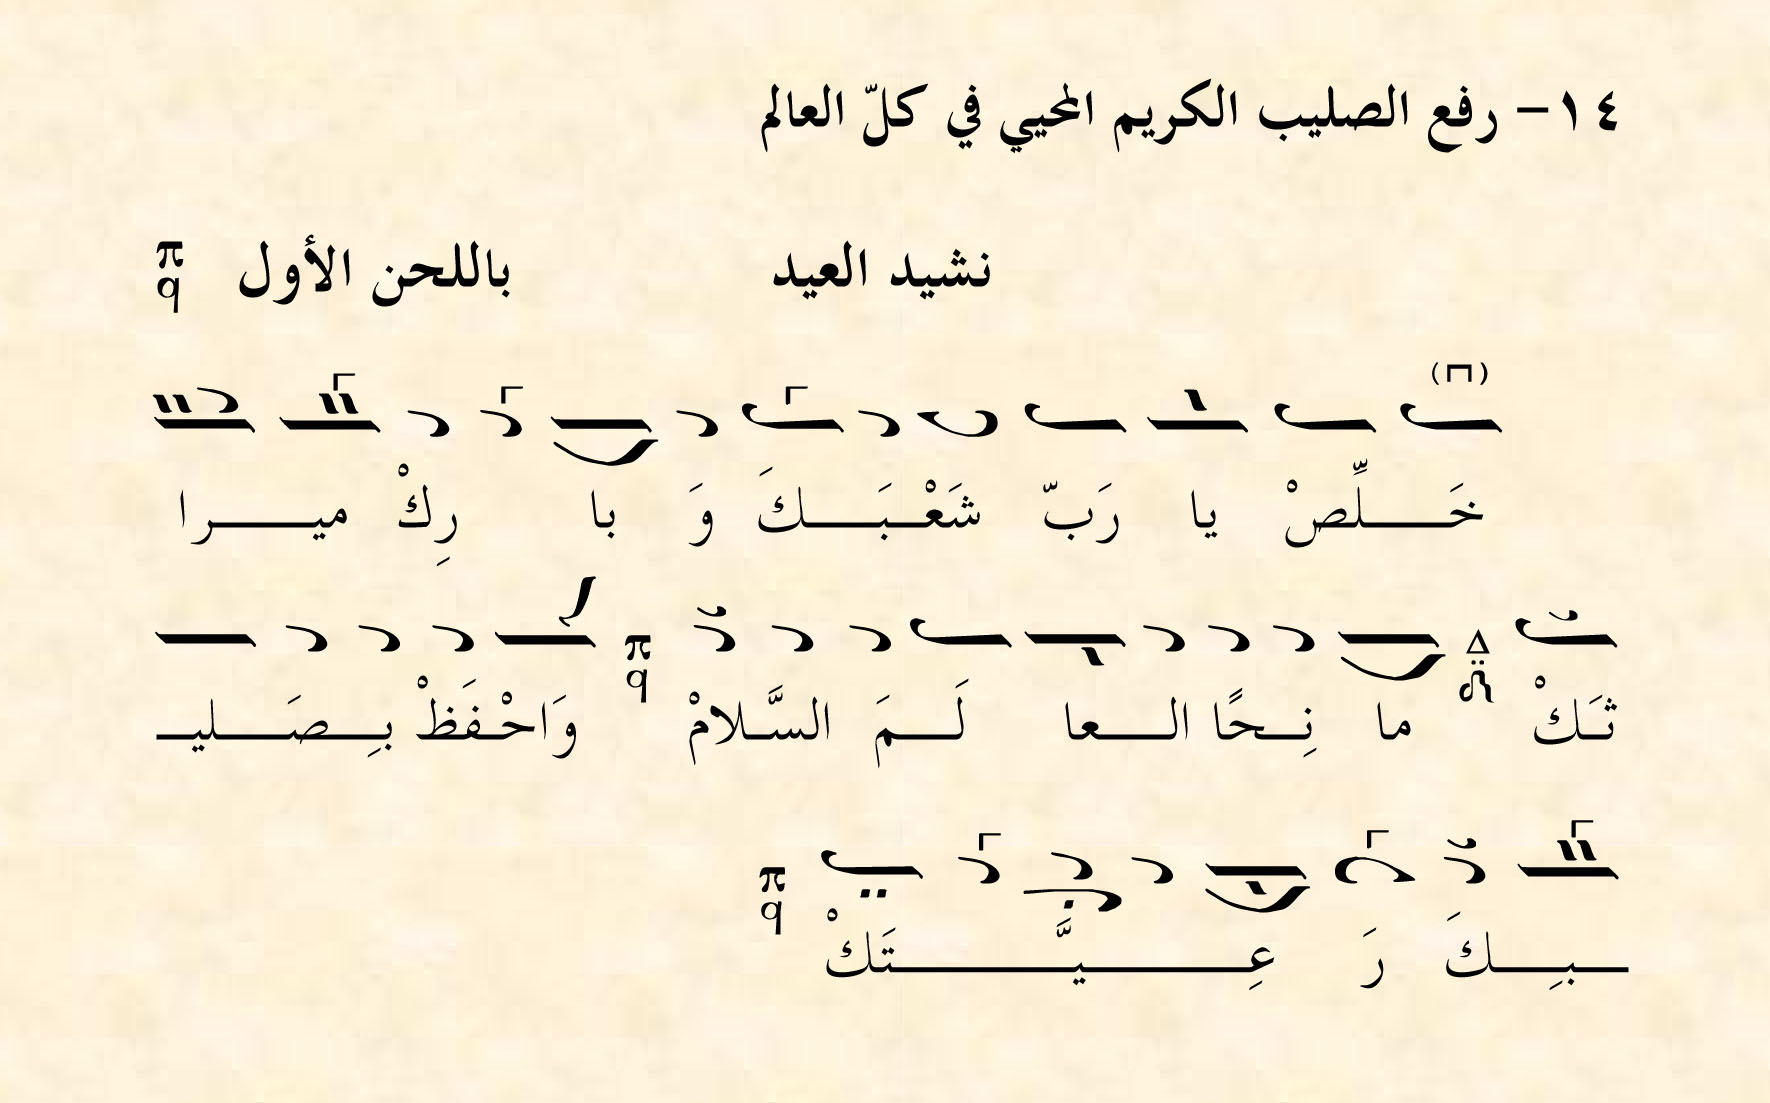 ١٤- رفع الصليب الكريم المحيي في كلّ العالم
نشيد العيد باللحن الأول π q
(Π)
خَـــلِّصْ يا رَبّ شَعْـبَـــكَ وَ با رِكْ ميـــرا
Δ π q
ثَـكْ ما نِـحًا الـعا لَـمَ السَّـلامْ وَاحْـفَظْ بِـصَـــليـ
ـبـِـكَ رَ عِـــيَّـــتَكْ π q